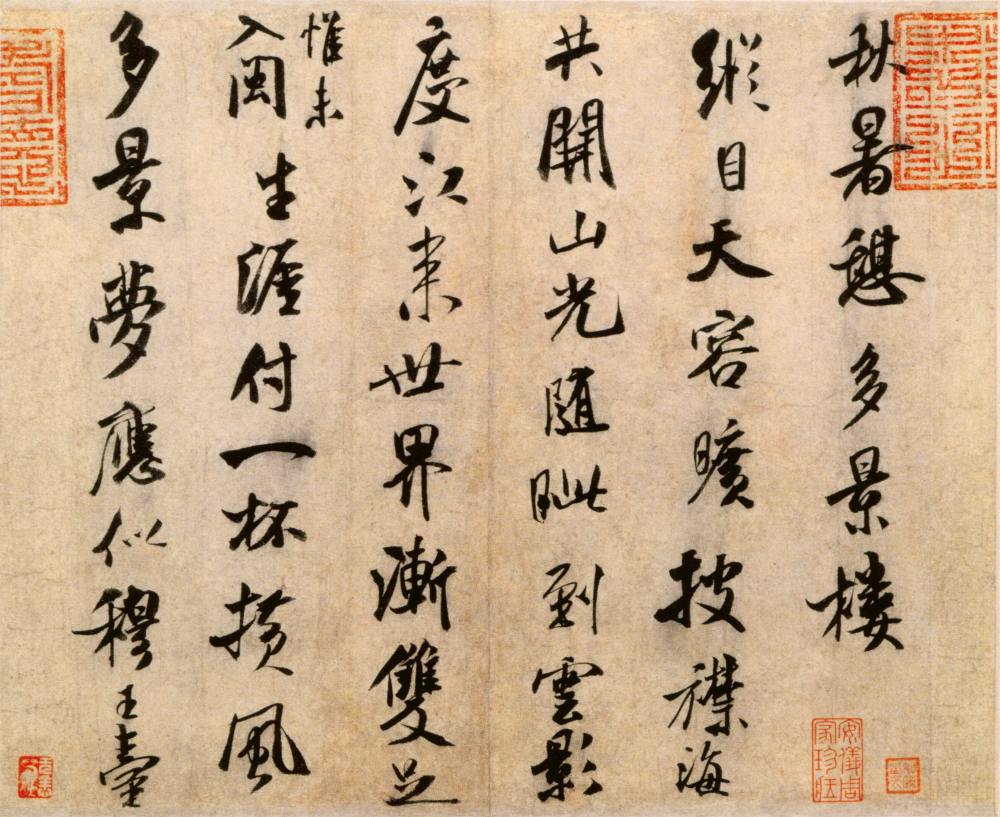 秋暑憩多景樓
縱目天容曠披襟海
共開山光隨眦到雲影
度江來世界漸雙足
惟未
入閩生涯付一杯橫風
多景夢應似穆王臺
安儀周家珍藏